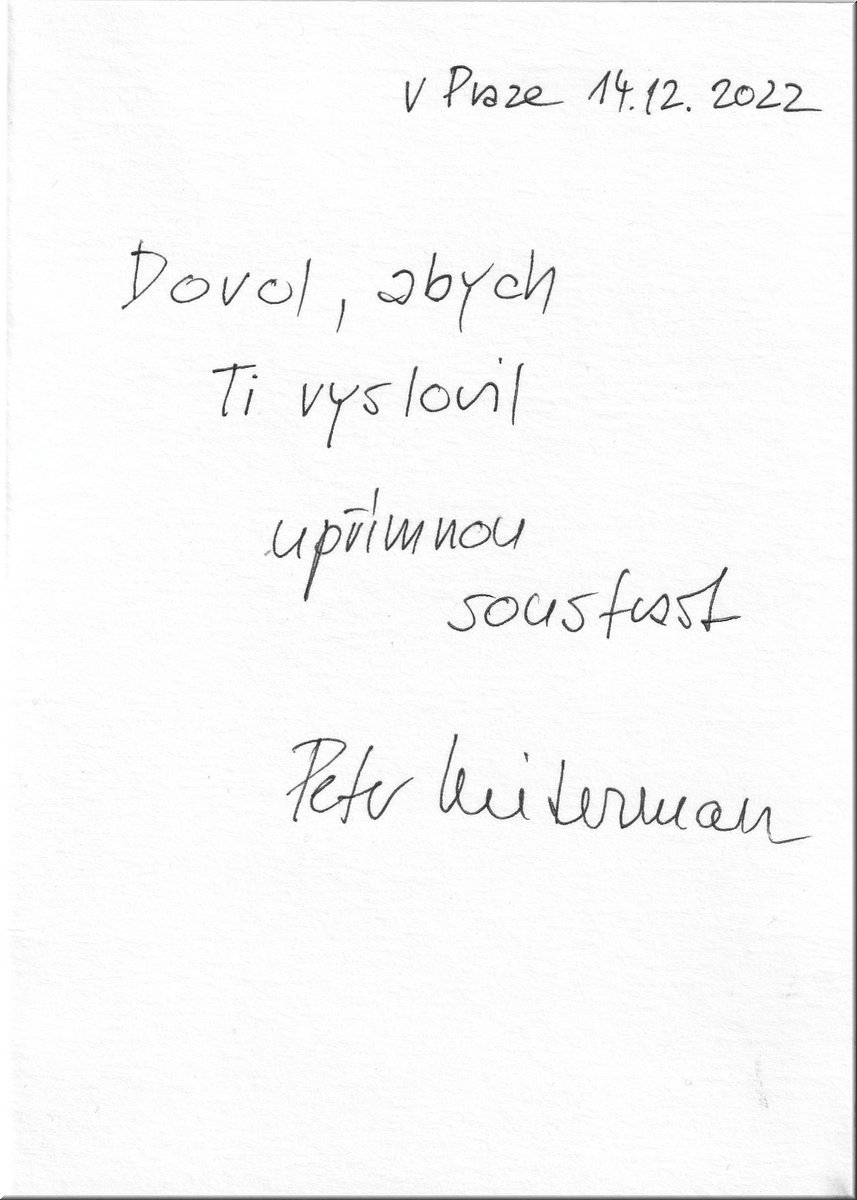 v Praze 14.12.2022
Dovol, abych
Ti vyslovil
upřímnou
soustrast
Peter